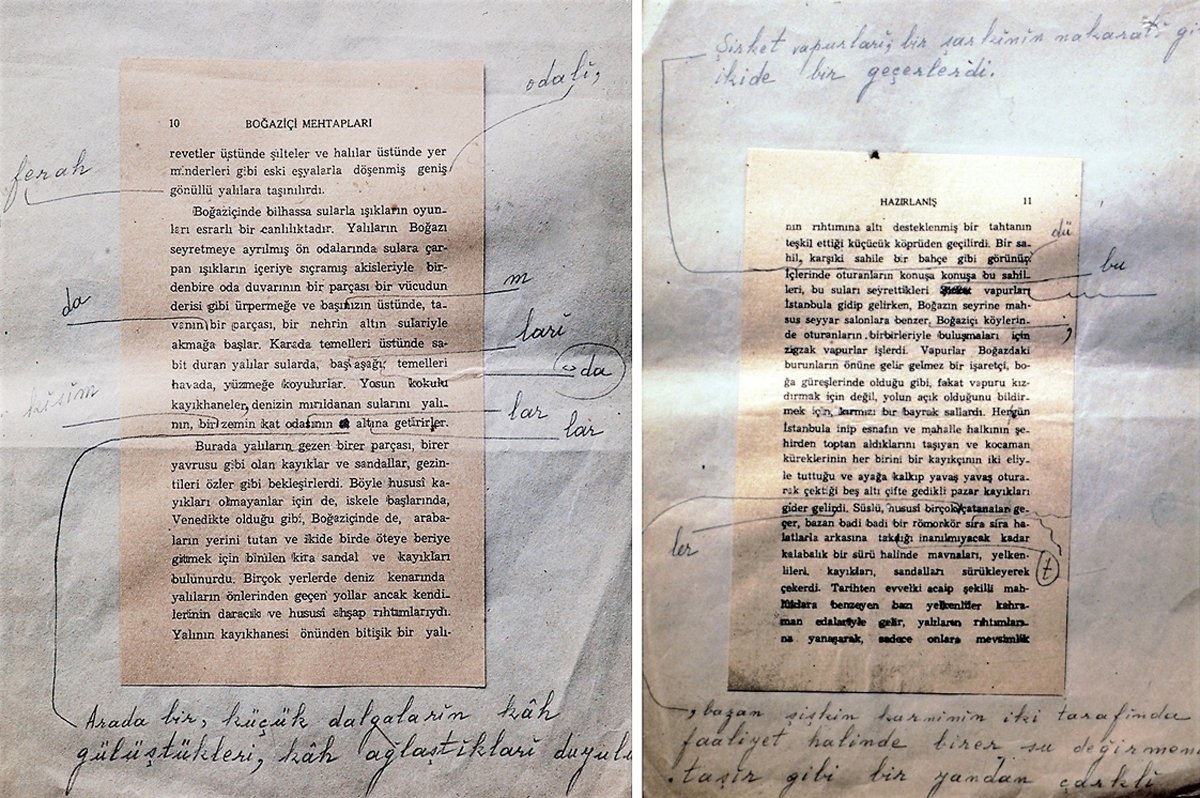 odalı,
ferah
10 BOĞAZİÇİ MEHTAPLARI
revetler üstünde şilteler ve halılar üstünde yer
minderleri gibi eski eşyalarla döşenmiş geniş
gönüllü yalılara taşınılırdı.
Boğaziçinde bilhassa sularla ışıkların oyun-
ları esrarlı bir canlılıktadır. Yalıların Boğazı
seyretmeye ayrılmış ön odalarında sulara çar-
pan ışıkların içeriye sıçramış akisleriyle bir-
denbire oda duvarının bir parçası bir vücudun
derisi gibi ürpermeğe ve başınızın üstünde, ta-
vanın bir parçası, bir nehrin altın sulariyle
akmağa başlar. Karada temelleri üstünde sa-
bit duran yalılar sularda, başaşağı, temelleri
havada, yüzmeğe koyulurlar. Yosun kokulu
kayıkhaneler, denizin mırıldanan sularını yalı-
nın, bir zemin kat odasının altına getirirler.
Burada yalıların gezen birer parçası, birer
yavrusu gibi olan kayıklar ve sandallar, gezin-
tileri özler gibi bekleşirlerdi. Böyle hususî ka-
yıkları olmayanlar için de, iskele başlarında,
Venedikte olduğu gibi, Boğaziçinde de, araba-
ların yerini tutan ve ikide birde öteye beriye
gitmek için binilen kira sandal ve kayıkları
bulunurdu. Birçok yerlerde deniz kenarında
yalıların önlerinden geçen yollar ancak kendi-
lerinin daracık ve hususî ahşap rıhtımlarıydı.
Yalının kayıkhanesi önünden bitişik bir yalı-
da
m
ları
da
kısım
lar
lar
Arada bir, küçük dalgaların kâh
gülüştükleri, kâh ağlaştıkları duyulu
Şirket vapurları, bir şarkının nakaratı gi
ikide bir geçerlerdi.
HAZIRLANIŞ 11
nın rıhtımına altı desteklenmiş bir tahtanın
teşkil ettiği küçücük köprüden geçilirdi. Bir sa-
hil, karşıki sahile bir bahçe gibi görünür.
İçlerinde oturanların konuşa konuşa bu sahil-
leri, bu suları seyrettikleri vapurları
İstanbula gidip gelirken, Boğazın seyrine mah-
sus seyyar salonlara benzer. Boğaziçi köylerin-
de oturanların birbirleriyle buluşmaları için
zigzak vapurlar işlerdi. Vapurlar Boğazdaki
burunların önüne gelir gelmez bir işaretçi, bo-
ğa güreşlerinde olduğu gibi, fakat vapuru kız-
dırmak için değil, yolun açık olduğunu bildir-
mek için, kırmızı bir bayrak sallardı. Hergün
İstanbula inip esnafın ve mahalle halkının şe-
hirden toptan aldıklarını taşıyan ve kocaman
küreklerinin her birini bir kayıkçının iki eliy-
le tuttuğu ve ayağa kalkıp yavaş yavaş otura-
rak çektiği beş altı çifte gedikli pazar kayıkları
gider gelirdi. Süslü, hususî birçok çatanalar ge-
çer, bazan badi badi bir römorkör sıra sıra ha-
latlarla arkasına taktığı inanılmıyacak kadar
kalabalık bir sürü halinde mavnaları, yelken-
lileri, kayıkları, sandalları sürükleyerek
çekerdi. Tarihten evvelki acaip şekilli mah-
lûklara benzeyen bazı yelkenliler kahra-
man edalariyle gelir, yalıların rıhtımları-
na yanaşarak, sadece onlara mevsimlik
dü
bu
,
ler
t
, bazan şişkin karnının iki tarafında
faaliyet halinde birer su değirmeni
taşır gibi bir yandan çarklı